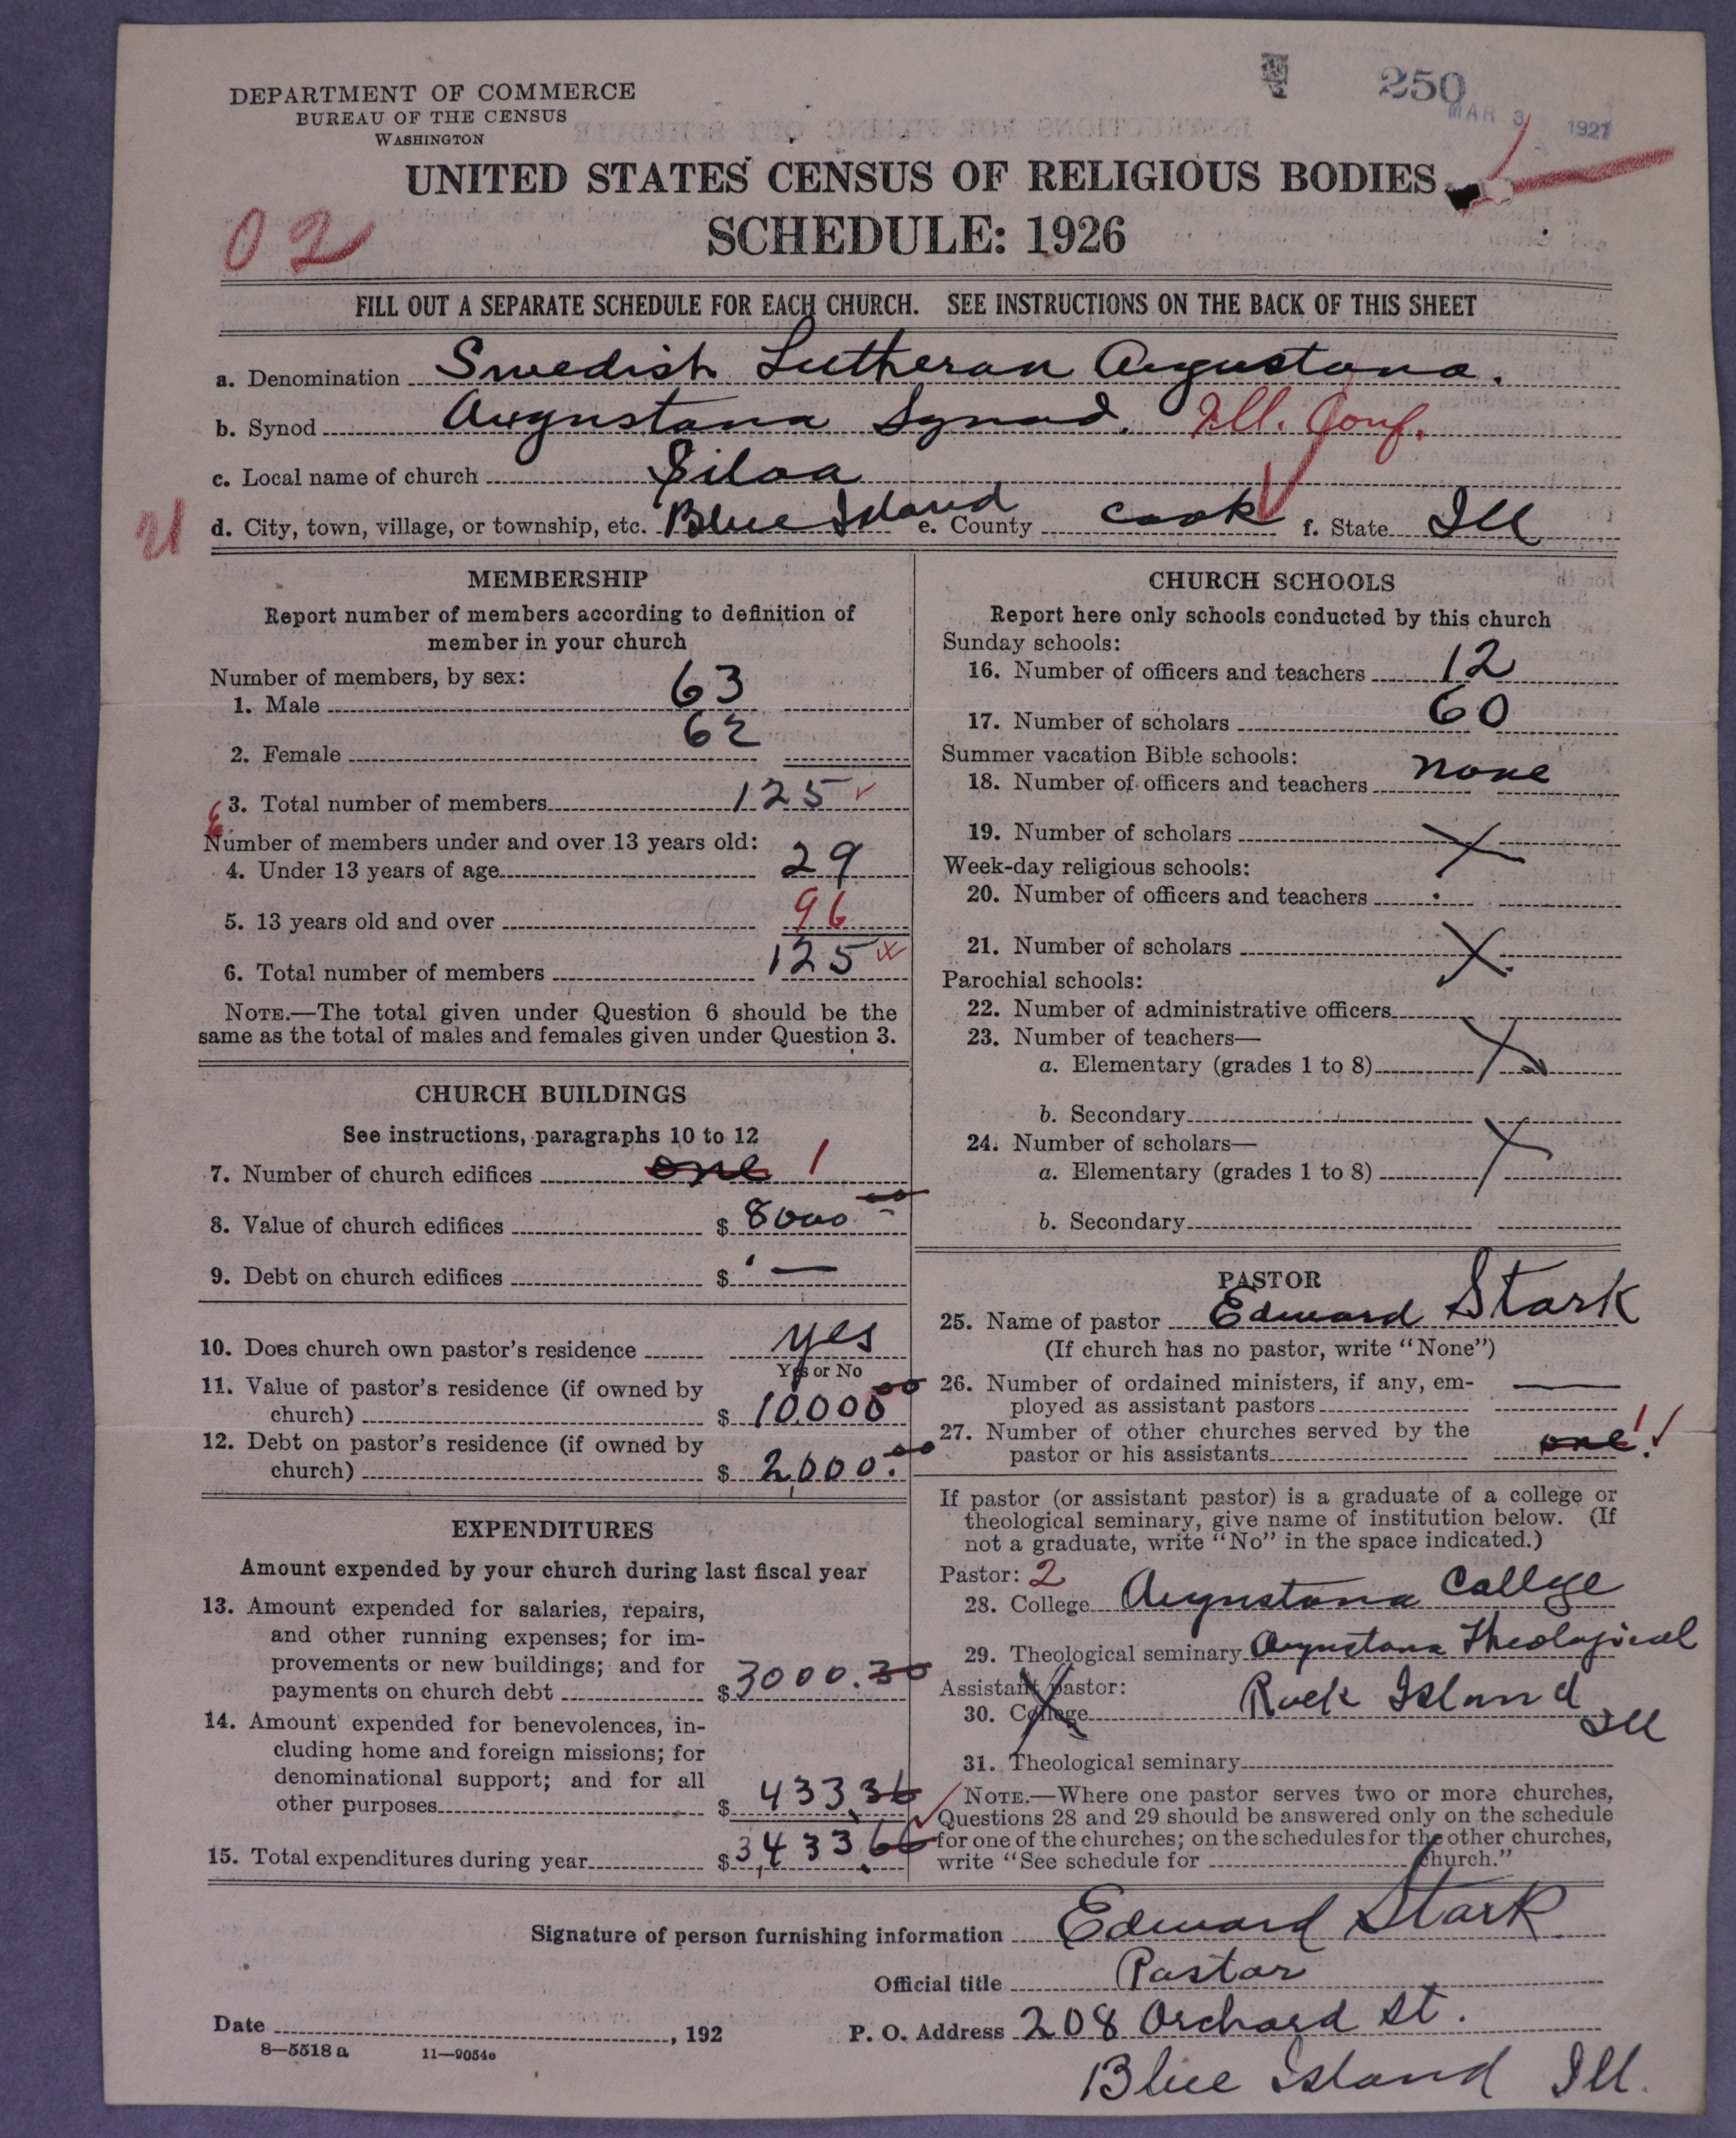 250
MAR 3 1927
DEPARTMENT OF COMMERCE
BUREAU OF THE CENSUS
WASHINGTON
UNITED STATES CENSUS OF RELIGIOUS BODIES
SCHEDULE: 1926
02
FILL OUT A SEPARATE SCHEDULE FOR EACH CHURCH. SEE INSTRUCTIONS ON THE BACK OF THIS SHEET
a. Denomination Swedish Lutheran Augustana.
b. Synod Augustana Synod. Ill. Conf.
c. Local name of church Siloa
d. City, town, village, or township, etc. Blue Island e. County Cook f. State Ill
MEMBERSHIP
Report number of members according to definition of
member in your church
Number of members, by sex:
1. Male 63
2. Female 62
3. Total number of members 125
Number of members under and over 13 years old:
4. Under 13 years of age 29
5. 13 years old and over 96
6. Total number of members 125
NOTE.—The total given under Question 6 should be the
same as the total of males and females given under Question 3.
CHURCH BUILDINGS
See instructions, paragraphs 10 to 12
7. Number of church edifices one 1
8. Value of church edifices $ 8000 00
9. Debt on church edifices $ —
10. Does church own pastor's residence yes
Yes or No
11. Value of pastor's residence (if owned by
church) $ 10000 00
12. Debt on pastor's residence (if owned by
church) $ 2,000.00
EXPENDITURES
Amount expended by your church during last fiscal year
13. Amount expended for salaries, repairs,
and other running expenses; for im-
provements or new buildings; and for
payments on church debt $ 3000.30
14. Amount expended for benevolences, in-
cluding home and foreign missions; for
denominational support; and for all
other purposes $ 433.36
15. Total expenditures during year $ 3,433.66
CHURCH SCHOOLS
Report here only schools conducted by this church
Sunday schools:
16. Number of officers and teachers 12
17. Number of scholars 60
Summer vacation Bible schools:
18. Number of officers and teachers none
19. Number of scholars
Week-day religious schools:
20. Number of officers and teachers
21. Number of scholars
Parochial schools:
22. Number of administrative officers
23. Number of teachers—
a. Elementary (grades 1 to 8)
b. Secondary
24. Number of scholars—
a. Elementary (grades 1 to 8)
b. Secondary
PASTOR
25. Name of pastor Edward Stark
(If church has no pastor, write "None")
26. Number of ordained ministers, if any, em-
ployed as assistant pastors —
27. Number of other churches served by the
pastor or his assistants one 1
If pastor (or assistant pastor) is a graduate of a college or
theological seminary, give name of institution below. (If
not a graduate, write "No" in the space indicated.)
Pastor: 2
28. College Augustana College
29. Theological seminary Augustana Theological
Assistant pastor: Rock Island
30. College Ill
31. Theological seminary
NOTE.—Where one pastor serves two or more churches,
Questions 28 and 29 should be answered only on the schedule
for one of the churches; on the schedules for the other churches,
write "See schedule for church."
Signature of person furnishing information Edward Stark
Official title Pastor
Date , 192
P. O. Address 208 Orchard St.
Blue Island Ill.
8—5518 a 11—9054e